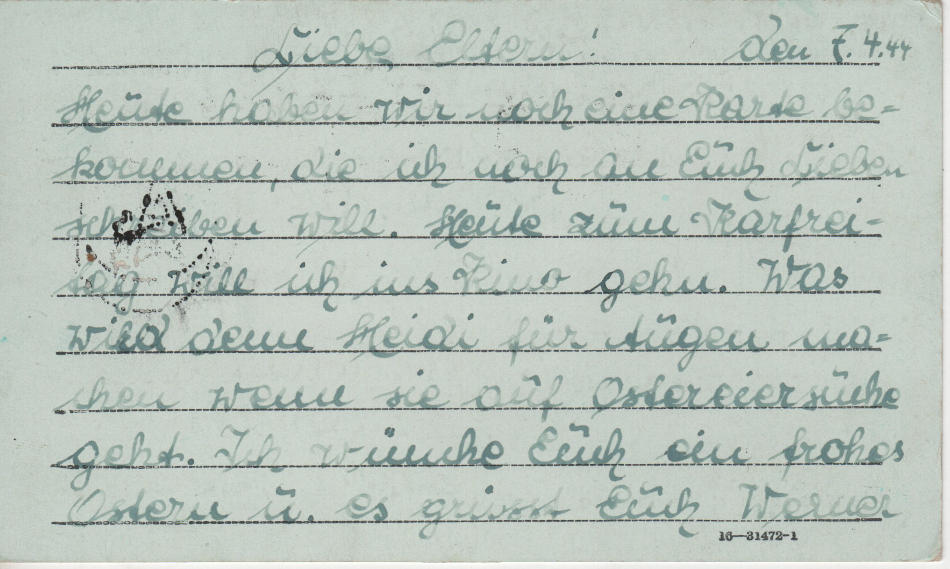 Liebe Eltern! den 7.4.44
Heute haben wir noch eine Karte be=
kommen, die ich noch an Euch Lieben
schreiben will. Heute zum Karfrei-
tag will ich ins Kino gehn. Was
wird denn Heidi für Augen ma=
chen wenn sie auf Ostereiersuche
geht. Ich wünche Euch ein frohes
Ostern u. es grüsst Euch Werner
16—31472-1